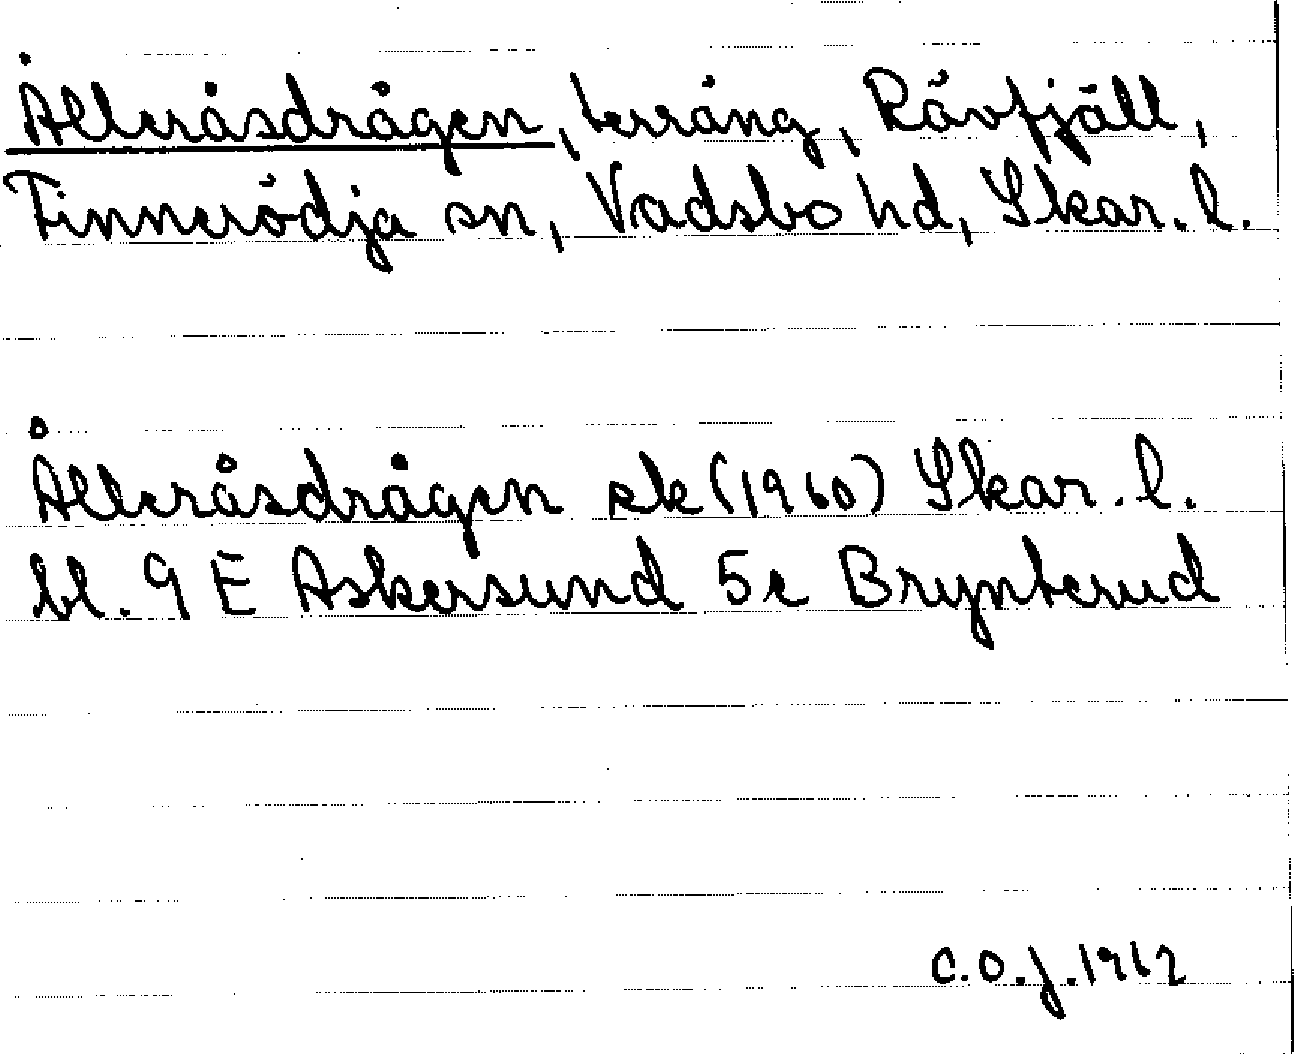 Ålleråsdrågen, terräng, Rävfjäll,
Finnerödja sn, Vadsbo hd, Skar. l.
Ålleråsdrågen ek (1960) Skar. l.
bl. 9 E Askersund 5c Brynterud
C.O.J. 1962